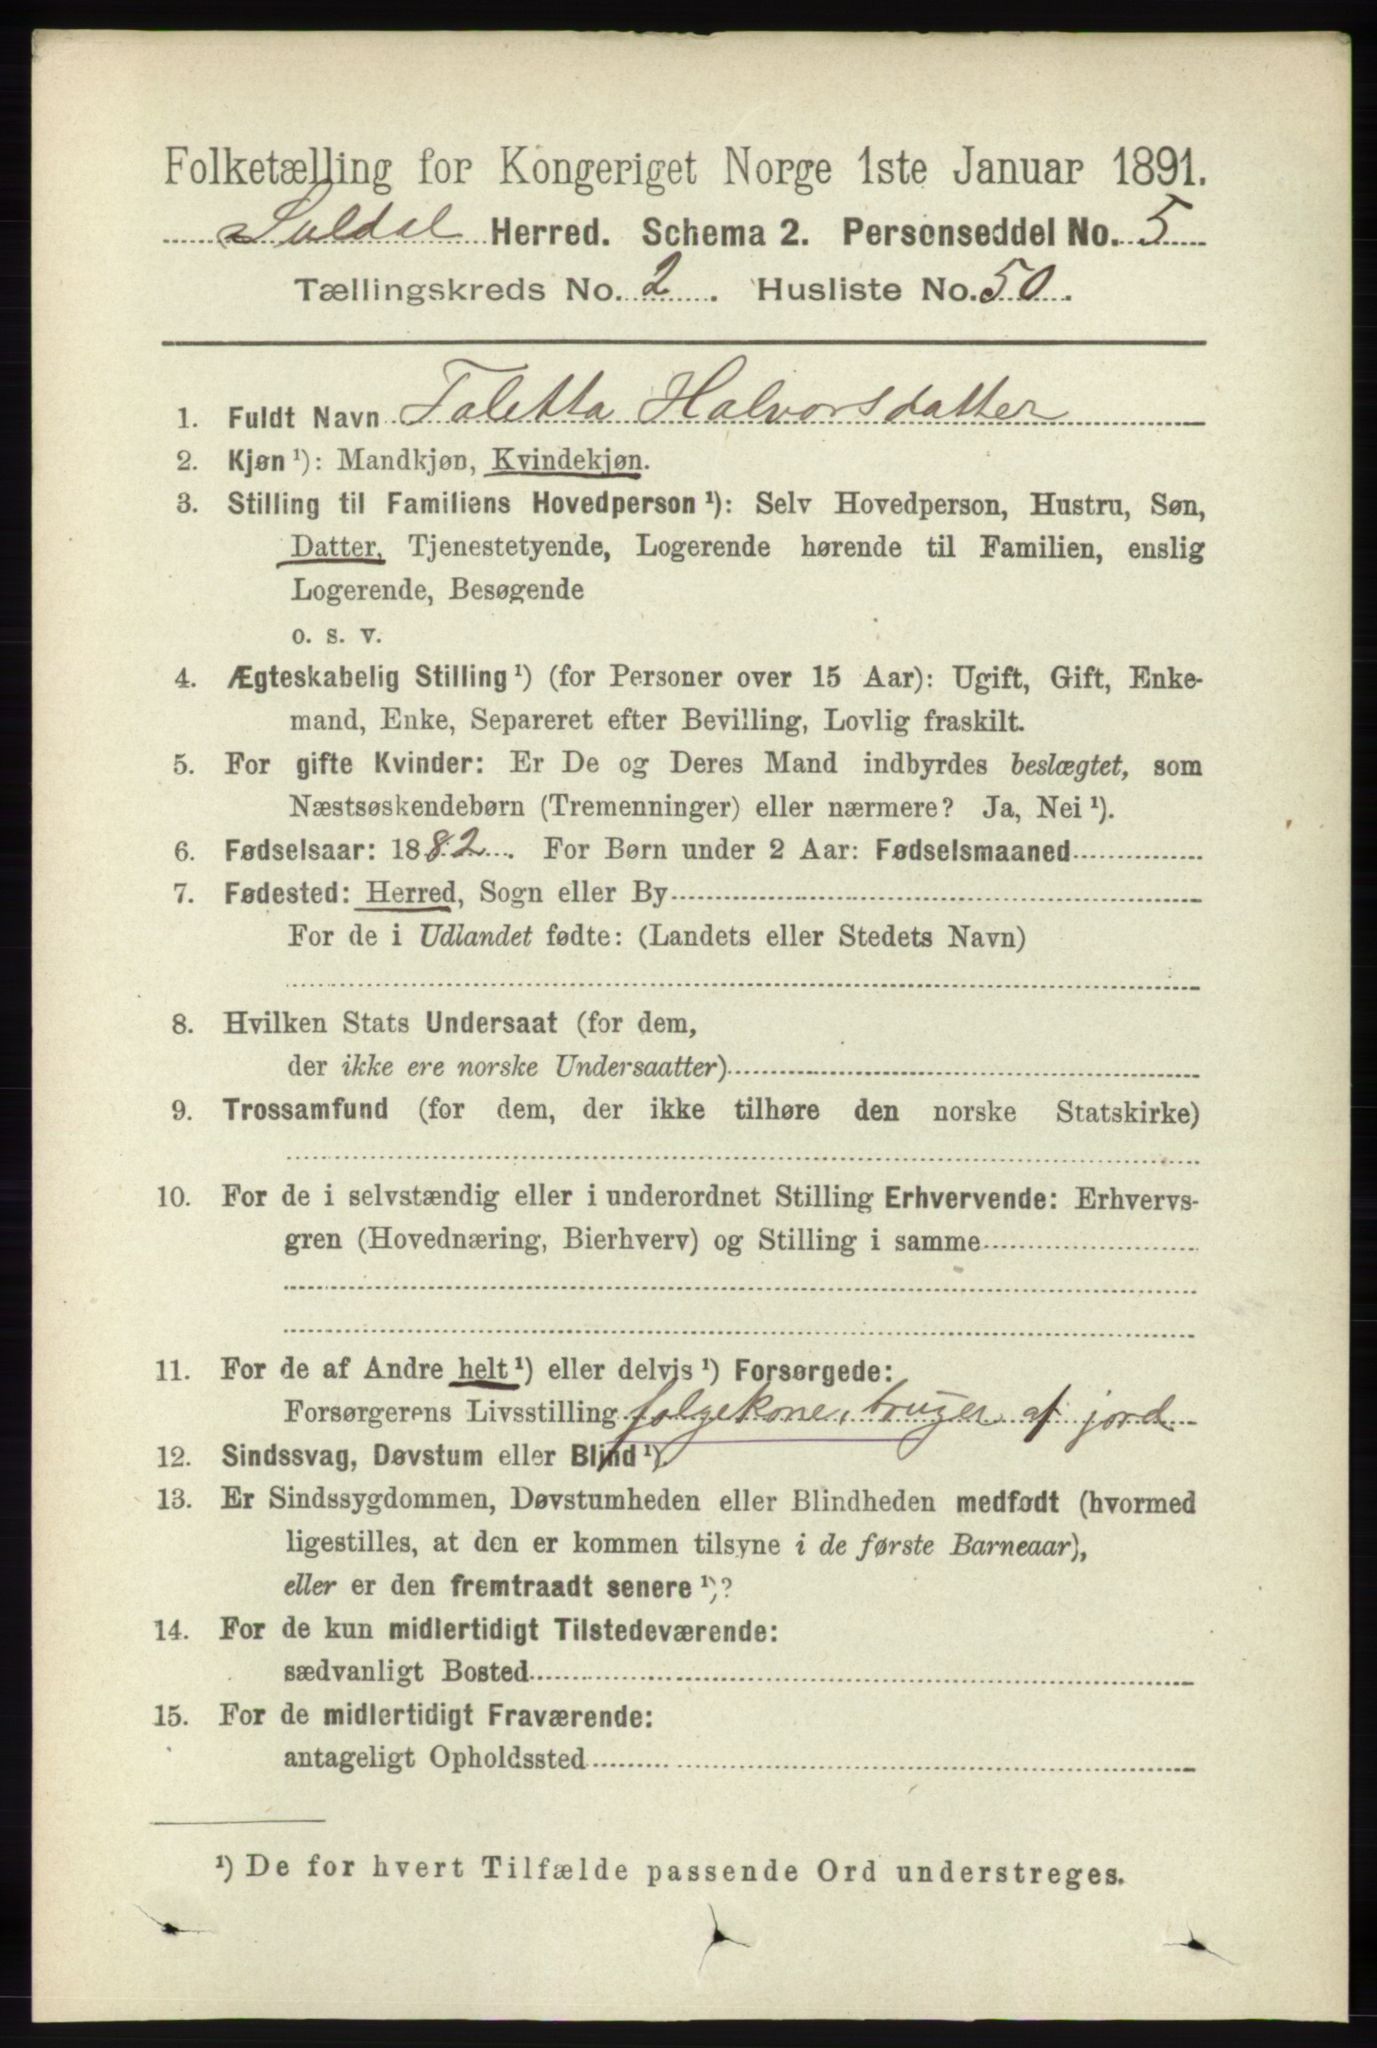 Folketælling for Kongeriget Norge 1ste Januar 1891.
Suldal Herred. Schema 2. Personseddel No. 5
Tællingskreds No. 2. Husliste No. 50.
1. Fuldt Navn Taletta Halvorsdatter
2. Kjøn ¹): Mandkjøn, Kvindekjøn.
3. Stilling til Familiens Hovedperson ¹): Selv Hovedperson, Hustru, Søn,
Datter, Tjenestetyende, Logerende hørende til Familien, enslig
Logerende, Besøgende
o. s. v.
4. Ægteskabelig Stilling ¹) (for Personer over 15 Aar): Ugift, Gift, Enke-
mand, Enke, Separeret efter Bevilling, Lovlig fraskilt.
5. For gifte Kvinder: Er De og Deres Mand indbyrdes beslægtet, som
Næstsøskendebørn (Tremenninger) eller nærmere? Ja, Nei ¹).
6. Fødselsaar: 1882. For Børn under 2 Aar: Fødselsmaaned
7. Fødested: Herred, Sogn eller By
For de i Udlandet fødte: (Landets eller Stedets Navn)
8. Hvilken Stats Undersaat (for dem,
der ikke ere norske Undersaatter)
9. Trossamfund (for dem, der ikke tilhøre den norske Statskirke)
10. For de i selvstændig eller i underordnet Stilling Erhvervende: Erhvervs-
gren (Hovednæring, Bierhverv) og Stilling i samme
11. For de af Andre helt ¹) eller delvis ¹) Forsørgede:
Forsørgerens Livsstilling folgekone, bruger af jord
12. Sindssvag, Døvstum eller Blind ¹).
13. Er Sindssygdommen, Døvstumheden eller Blindheden medfødt (hvormed
ligestilles, at den er kommen tilsyne i de første Barneaar),
eller er den fremtraadt senere ¹)?
14. For de kun midlertidigt Tilstedeværende:
sædvanligt Bosted
15. For de midlertidigt Fraværende:
antageligt Opholdssted
¹) De for hvert Tilfælde passende Ord understreges.